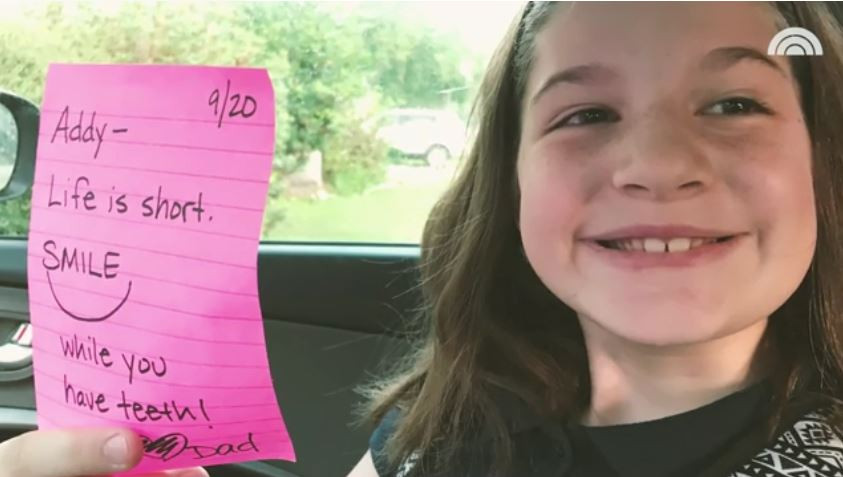 9/20
Addy-
Life is short.
SMILE
while you
have teeth!
Dad